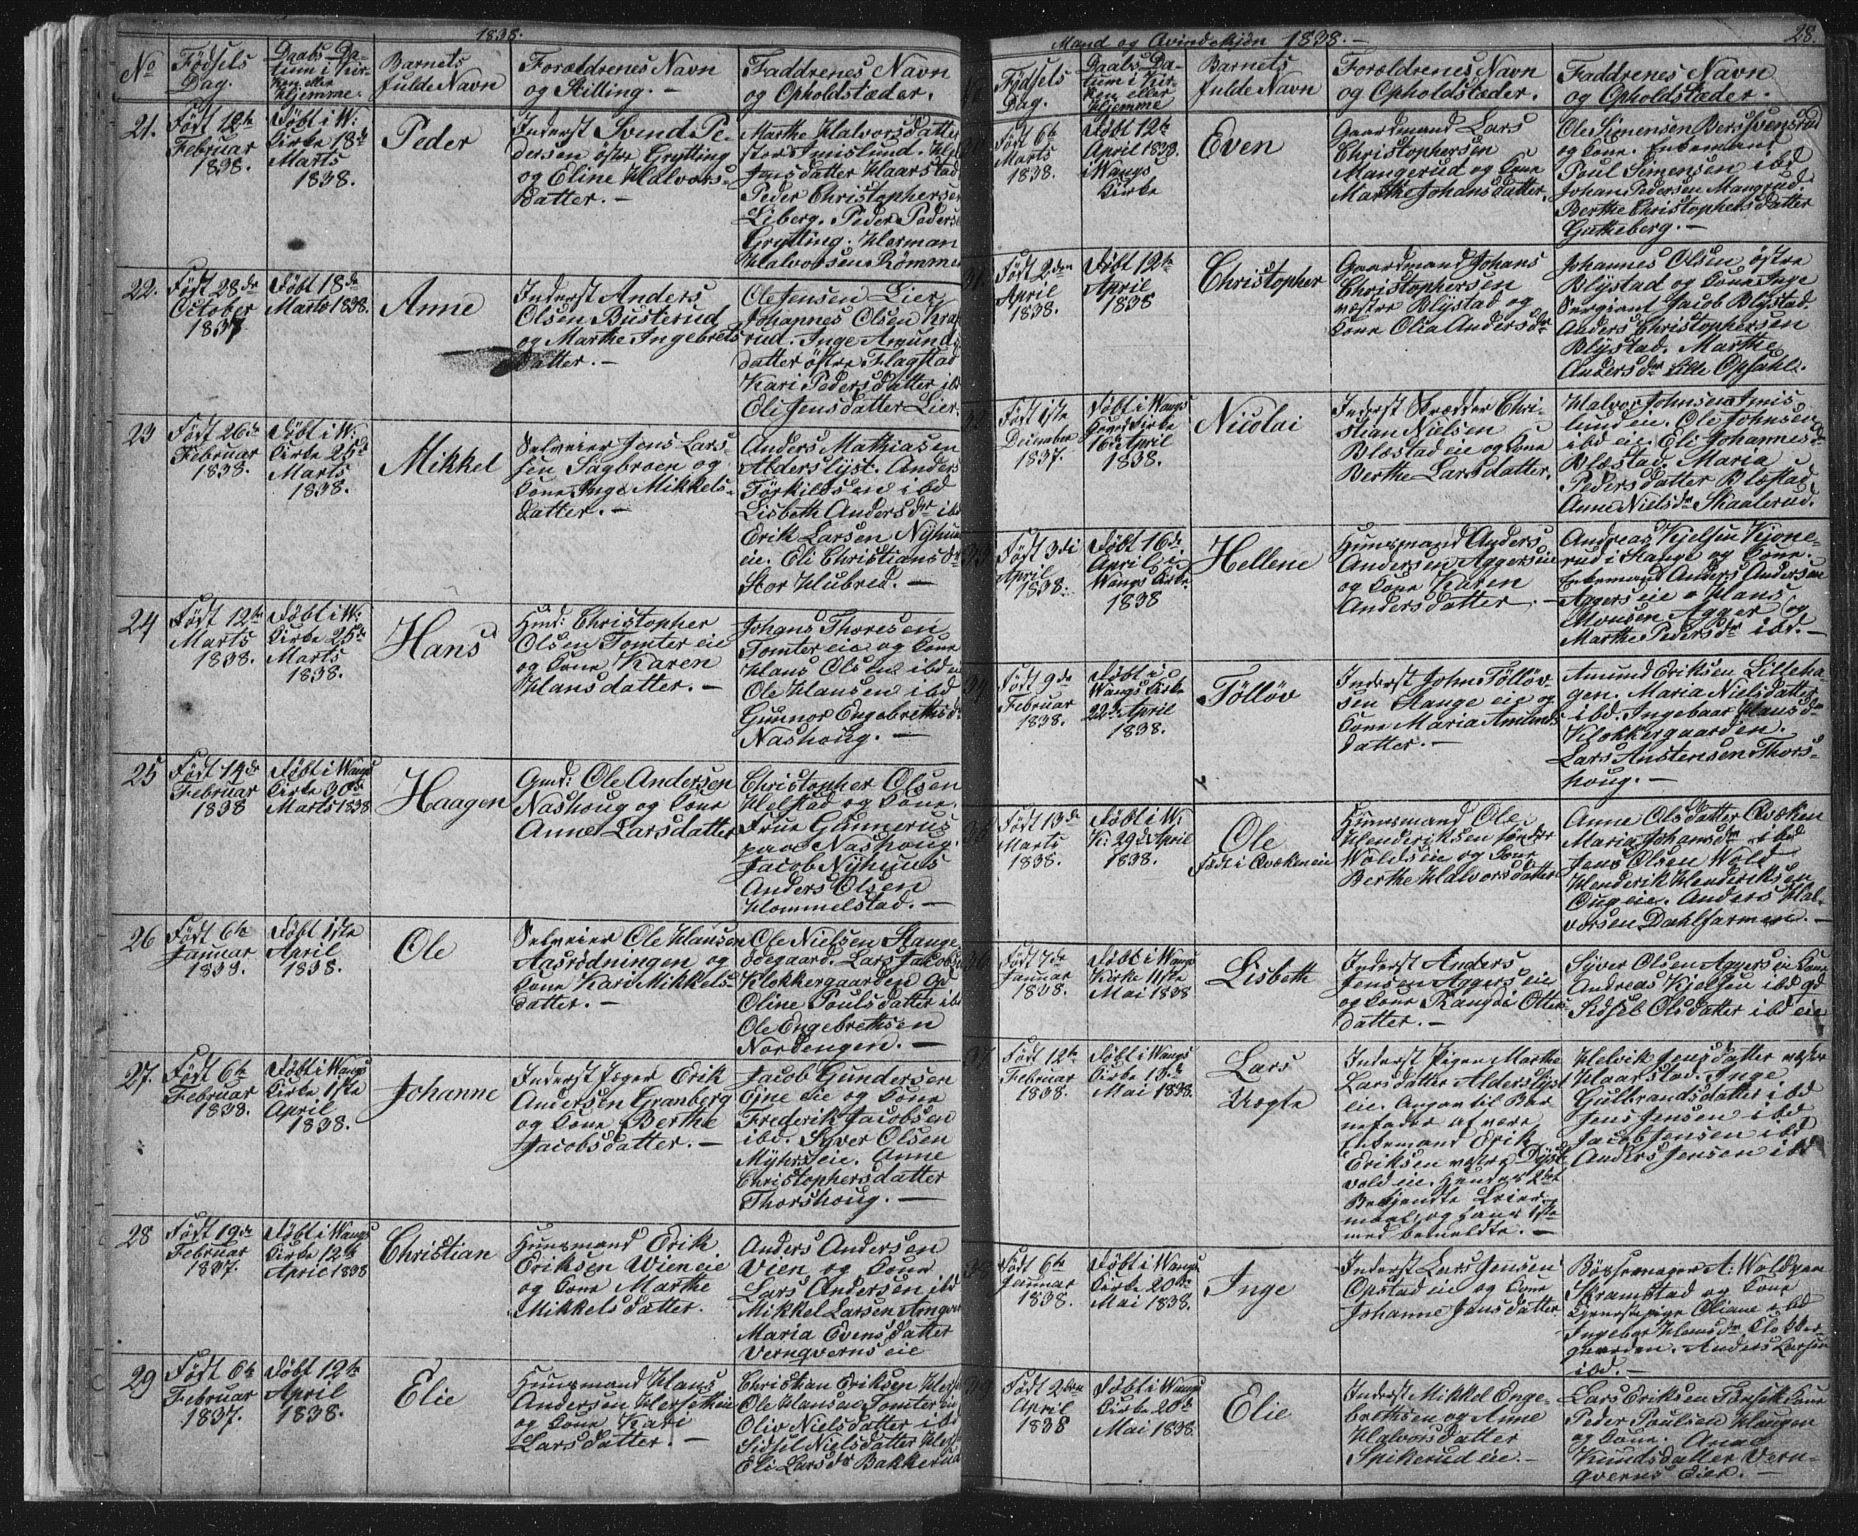 1838.
No
Fødsels
Dag.
Daabs Da-
tum i Kir-
ken eller
Hjemme.
Barnets
fulde Navn
Forældrenes Navn
og Stilling.
Faddrenes Navn
og Opholdstæder.
21.
Født 12te
Februar
1838.
Døbt i W.
Kirke 18de
Marts
1838.
Peder
Inderst Svend Pe-
dersen østre Grytting
og Eline Halvors-
datter. —
Marthe Halvorsdatter
stor Imislund.
Jensdatter Haarstad
Peder Christophersen
Liberg. Peder Peders
Grytting. Herman
Halvorsen Rømmen
22.
Født 28de
October
1837
Døbt 18de
Marts 1838.
Anne
Inderst Anders
Olsen Busterud
og Marthe Ingebrets
datter. —
Ole Jensen Lier
Johannes Olsen
rud. Inge Amunds
datter østre Flagstad
Kari Pedersdatter ibd
Eli Jensdatter Lier.
23
Født 26de
Februar
1838.
Døbt i W.
Kirke 25de
Marts
1838.
Mikkel
Selveier Jens Lars-
sen Sagbroen og
Kone Inge Mikkels-
datter. —
Anders Mathiasen
Alderslyst. Anders
Torkildsen ibd
Lisbeth Andersdr ibd
Erik Larsen Nyhuus
eie. Eli Christiansdr
Stor Hubred. —
24
Født 12te
Marts
1838.
Døbt i W.
Kirke 25de
Marts
1838.
Hans
Hmd: Christopher
Olsen Tomter eie
og Kone Karen
Hansdatter. —
Johans Thoresen
Tomter eie og Kone
Hans Olsen ibd
Ole Hansen ibd
Gunnor Engebretsd
Nashoug. —
25
Født 14de
Februar
1838
Døbt i Wangs
Kirke 30te
Marts 1838
Haagen
Gmd: Ole Andersen
Nashoug og Kone
Anne Larsdatter
Christopher Olsen
Helstad og Kone.
Frue Gunnerus
paa Nashoug.
Jacob Nyhuus
Anders Olsen
Hommelstad. —
26
Født 6te
Januar
1838.
Døbt 1ste
April
1838.
Ole
Selveier Ole Hansen
Aasrødningen og
Kone Kari Mikkels-
datter. —
Ole Nielsen Stange
ødegaard. Lars Jacobs
Klokkergaarden
Oline Poulsdatter ibd
Ole Engebrethsen
Nordengen. —
27.
Født 6te
Februar
1838.
Døbt i Wangs
Kirke 1ste
April
1838.
Johanne
Inderst Jæger Erik
Andersen Granberg
og Kone Berthe
Jacobsdatter. —
Jacob Gundersen
Eine eie og Kone
Frederik Jacobsen
ibd. Syver Olsen
Myhrseie. Anne
Christophersdatter
Thorshoug. —
28
Født 19de
Februar
1837.
Døbt i Wangs
Kirke 12te
April 1838
Christian
Huusmand Erik
Eriksen Wien eie
og Kone Marthe
Mikkelsdatter.
Anders Andersen
Vien og Kone
Lars Andersen ibd
Mikkel Larsen
Maria Evensdatter
Vernqvernseie
29
Født 6te
Februar
1837.
Døbt 12te
April
1838.
Elie
Huusmand Hans
Andersen
og Kone Kari
Larsdatter. —
Christian Eriksen
Ole Hansen Tomter
Oliv Nielsdatter ibd
Sidsel Nielsdatter
Eli Larsdr Bakkerud
Mand og Qvindekjøn 1838. —
28.
Fødsels
Dag.
Daabs Da-
tum i Kir-
ken eller
Hjemme
Barnets
fulde Navn
Forældrenes Navn
og Opholdstæder.
Faddrenes Navn
og Opholdstæder.
Født 6te
Marts
1838.
Døbt 12te
April 1838.
i Wangs
Kirke
Even
Gaardmand Lars
Christophersen
Mangerud og Kone
Marthe Johansdatter.
Ole Simensen Berssvenstad
og Kone. Enkemand
Poul Simensen ibd
Johan Pedersen Mangrud.
Berthe Christophersdatter
Gukeberg. —
Født 2den
April
1838.
Døbt 12te
April
1838
Christopher
Gaardmand Johans
Christophersen
væstre Blystad og
Kone Olia Andersdr
Johannes Olsen østre
Blystad og Kone Inge
Sergiant Jacob Blystad
Anders Christophersen
Blystad. Marthe
Andersdr lille Opsahl.
Født 1ste
Deimber
1837.
Døbt i Wangs
Hoved Kirke
16de April
1838.
Nicolai
Inderst Skrædder Chri-
stian Nielsen
Blæstad eie og Kone
Berthe Larsdatter.
Halvor Johnsen Imis
lund eie. Ole Johnsen
ibd eie. Eli Johannesdr
Blæstad. Maria
Pedersdatter Blæstad
Anne Nielsdr Skaalerud.
Født 3die
April
1838.
Døbt 16de
April i
Wangs Kirke
1838
Hellene
Huusmand Anders
Andersen Aggerseie
og Kone Karen
Andersdatter. —
Andreas Kjelsen Kjone-
rud i Stange og Kone.
Enkemand Anders Andersen
Aggers eie. Hans
Monsen Agger og
Marthe Pedersdr ibd. —
Født 9de
Februar
1838.
Døbt i
Wangs Kirke
22de April
1838.
Tølløv
Inderst John Tølløv
sen Stange eie og
Kone Maria Amunds
datter. —
Amund Eriksen Lilleha-
gen. Maria Nielsdatter
ibd. Ingebaar Hansdr
Klokkergaarden.
Lars Anstensen Thors-
houg. —
Født 13de
Marts
1838.
Døbt i W.
K: 29de April
1838.
Ole
født i Qvækeneie
Huusmand Ole
Henderiksen søndre
Woldseie og Kone
Berthe Halvorsdatter
Anne Olsdatter Qvæken
Maria Johansdr ibd
Jens Olsen Wold
Henderik Henderiksen
eie. Anders Hal-
vorsen Dahlfarmen. —
Født 7de
Januar
1838.
Døbt i Wangs
Kirke 11te
Mai 1838
Lisbeth
Inderst Anders
Jensen Aggers eie
og Kone Rangne Otters
datter. —
Syver Olsen Aggers eie Kone
Andreas Kjelsen ibd
Sidsel Olsdatter ibd eie
37
Født 12te
Februar
1838.
Døbt i Wangs
Kirke 13de
Mai 1838.
Lars
Uægte
Inderst Pigen Marthe
Larsdatter Alderslyst
eie. Angav til Bar
nefader at være
Enkemand Erik
Eriksen væstre Dyst
vold eie. Hendes 2det
Bekjendte Leier
maal og hans 1ste
med bemeldte. —
Helvik Jensdatter væstre
Haarstad. Inge
Gulbrandsdatter ibd
Jens Jensen ibd
Jacob Jensen ibd
Anders Jensen ibd
Født 6te
Januar
1838.
Døbt i Wangs
Kirke 20de
Mai 1838.
Inge
Inderst Lars Jensen
Opstad eie og Kone
Johanne Jensdatter
Bøssemager A: Woldgen
Skramstad og Kone
Tjenestepige Oliane ibd
Ingebor Hansdr Klokker-
gaarden. Anders Larsen
ibd. —
Født 2den
April
1838
Døbt i Wangs
Kirke 20de
Mai 1838.
Elie
Inderst Mikkel Enge-
brethsen og Anne
Halvorsdatter
Spikerud eie. —
Lars Eriksen
Peder Poulsen Haugen
og Kone. Anne
Knudsdatter Vern-
qverns Eier. —